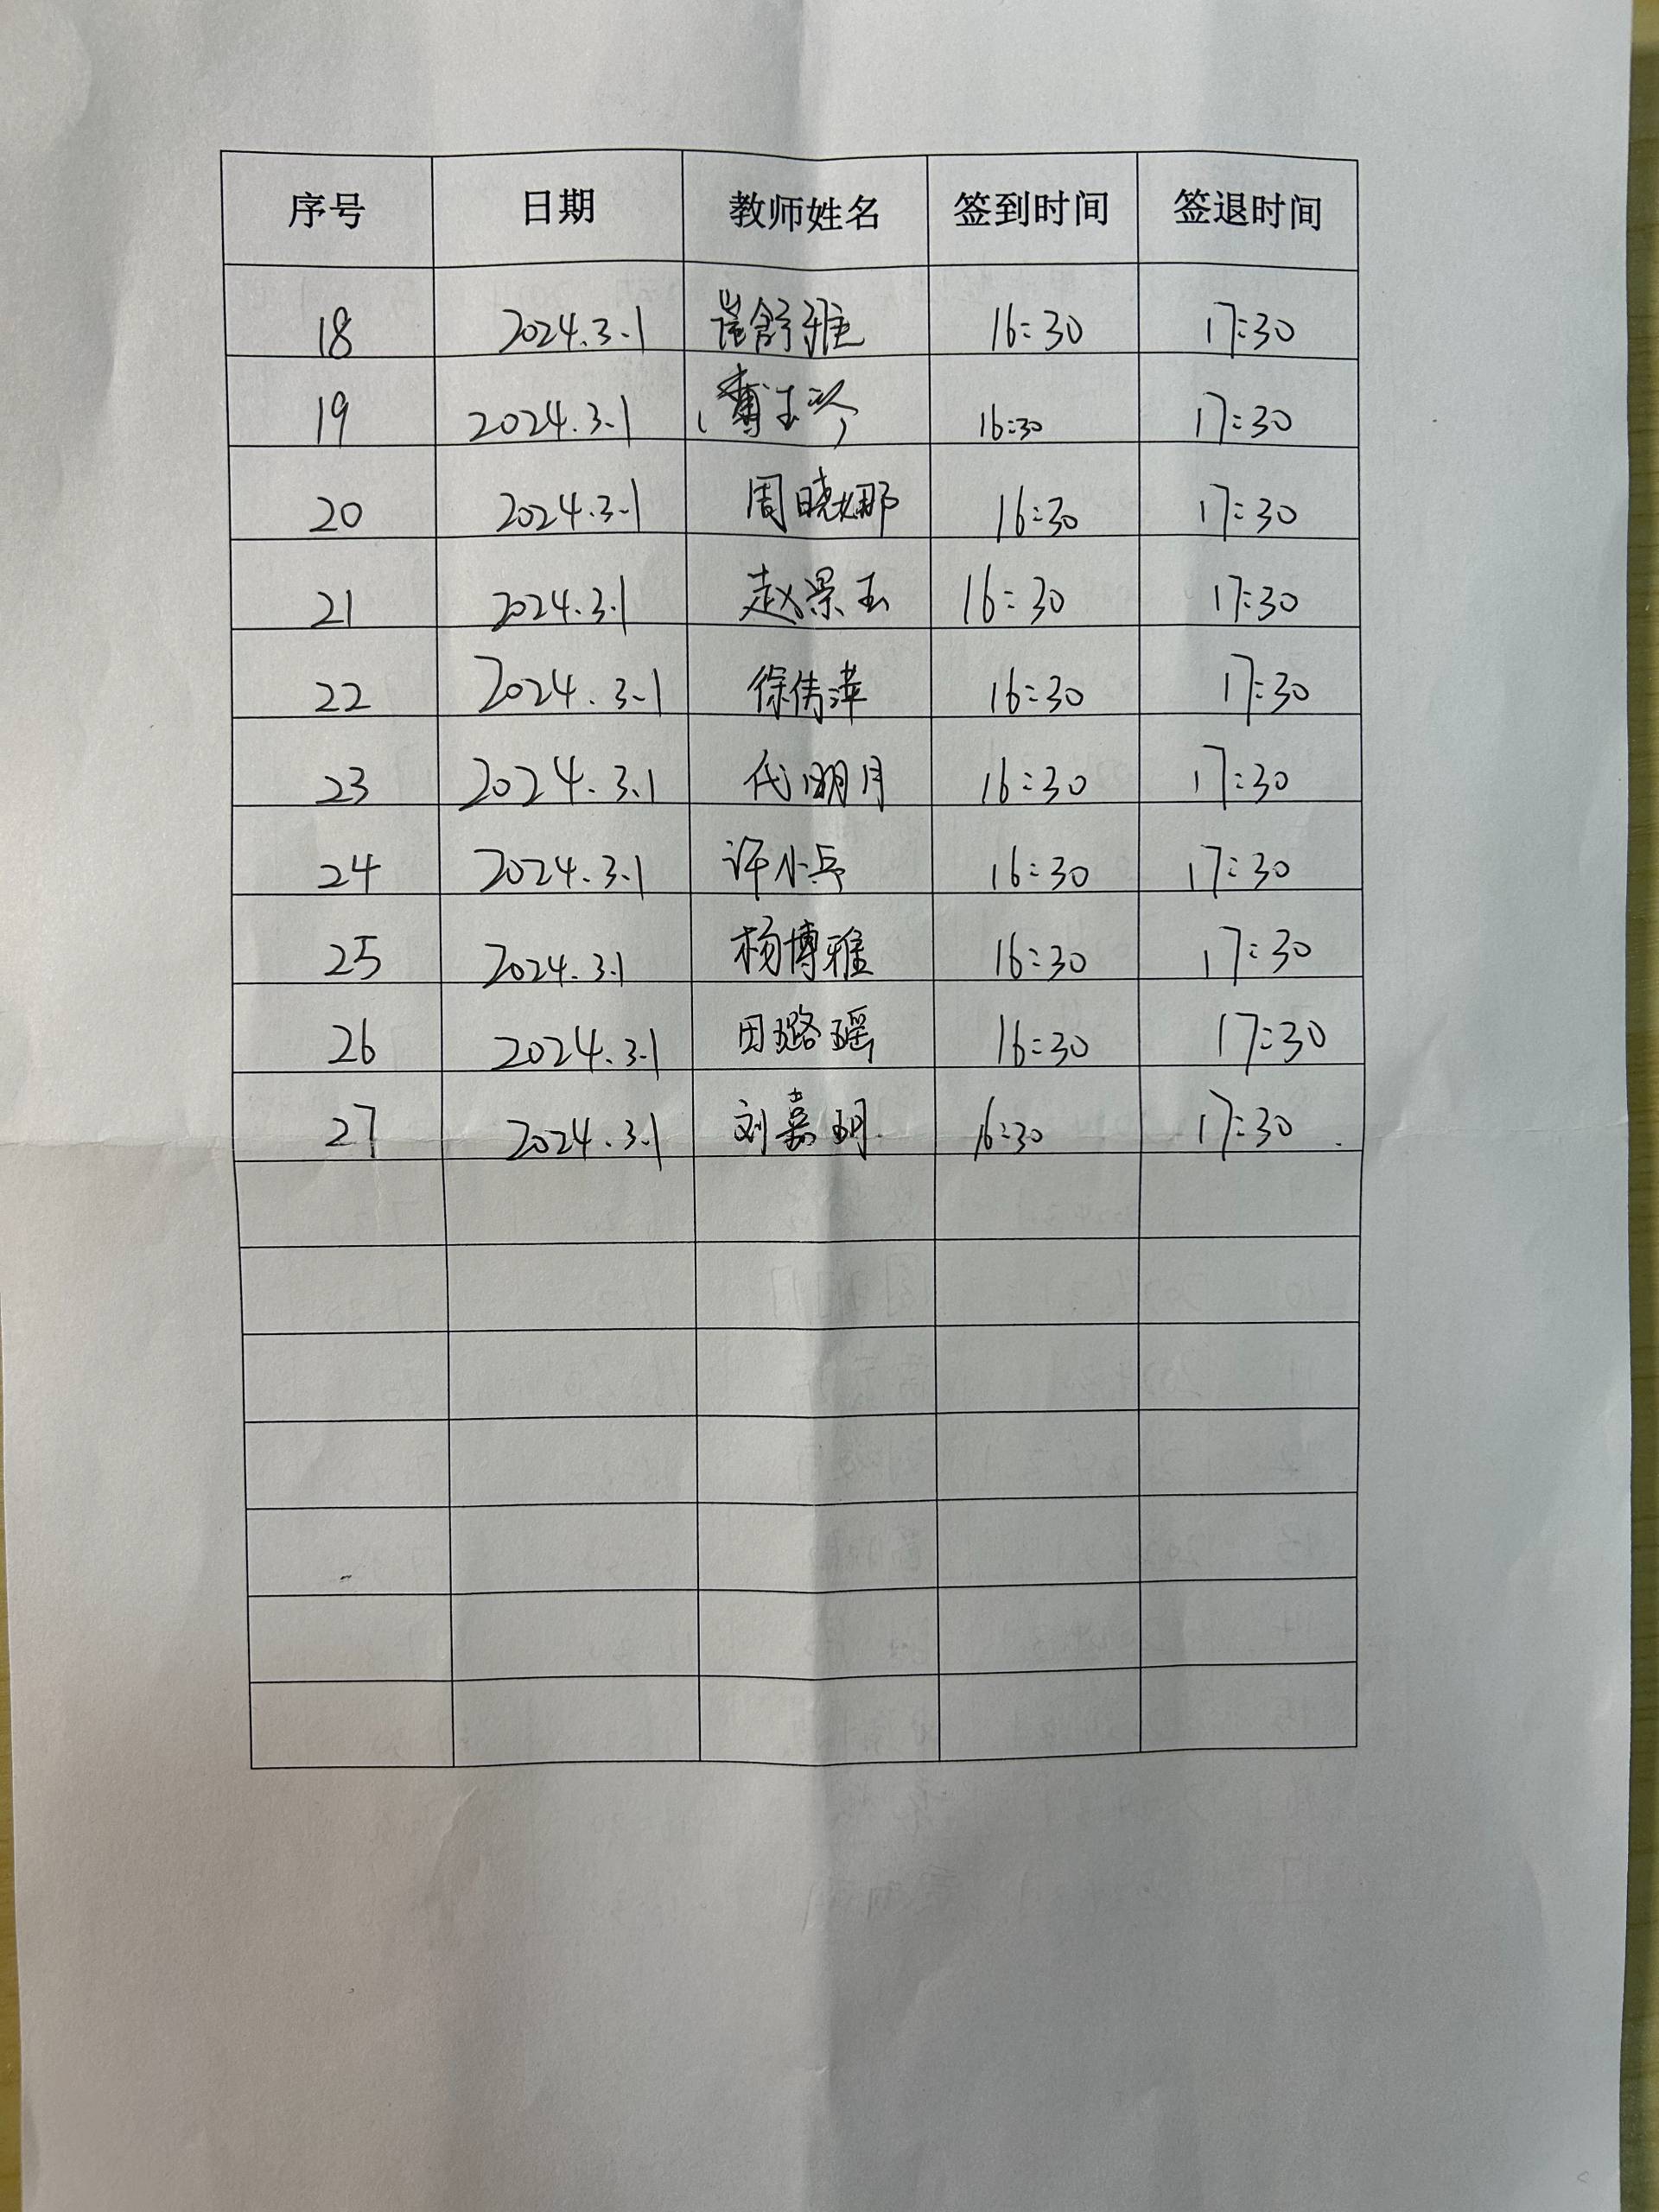 序号 日期 教师姓名 签到时间 签退时间
18 2024.3.1 舒雅 16:30 17:30
19 2024.3.1 16:30 17:30
20 2024.3.1 周晓娜 16:30 17:30
21 2024.3.1 赵景玉 16:30 17:30
22 2024.3.1 徐倩萍 16:30 17:30
23 2024.3.1 代明月 16:30 17:30
24 2024.3.1 许小 16:30 17:30
25 2024.3.1 杨博雅 16:30 17:30
26 2024.3.1 田璐瑶 16:30 17:30
27 2024.3.1 刘嘉玥 16:30 17:30